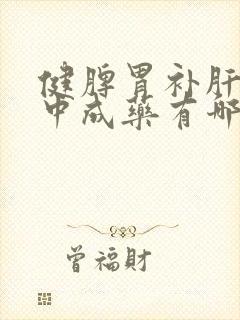 健脾胃补肝
中成藥有哪
曾福財